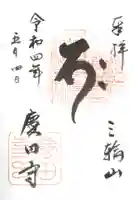 奉拝
三輪山
慶田寺
令和四年
五月四日